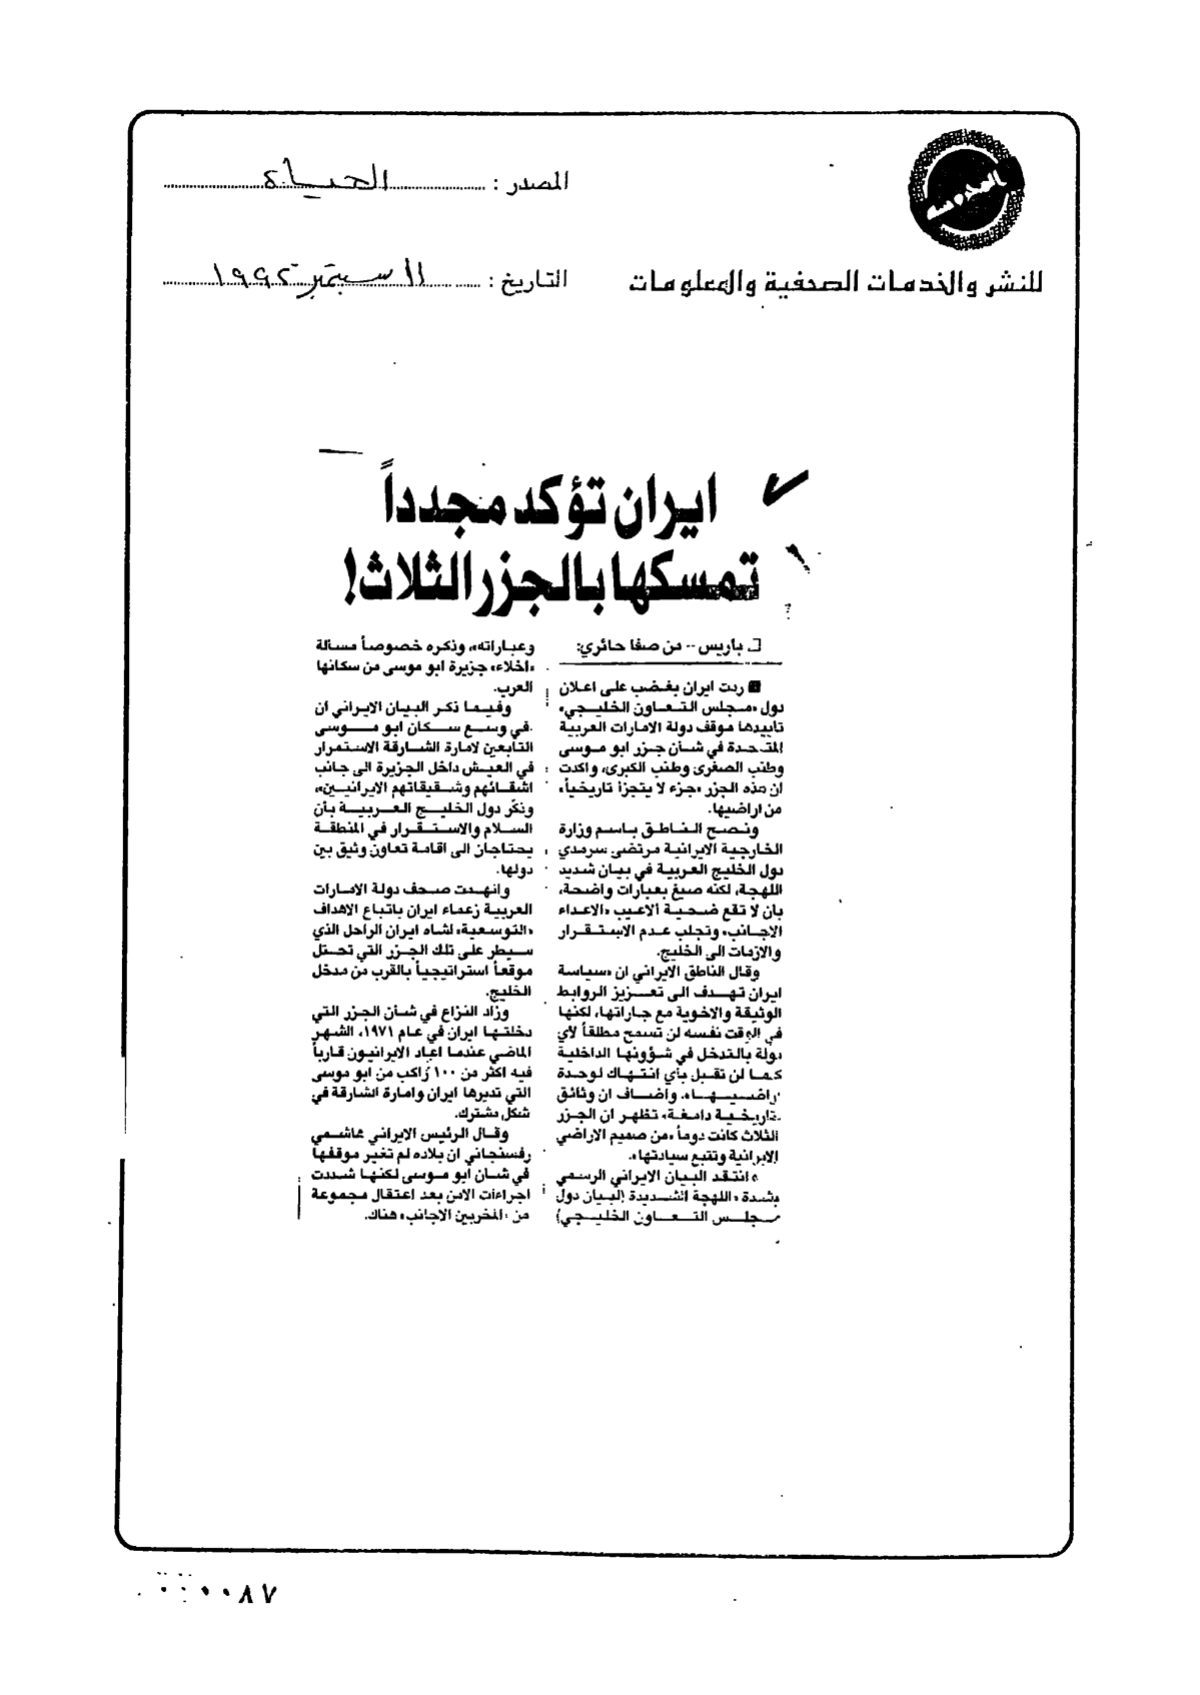 المصدر : الحياة
للنشر والخدمات الصحفية والمعلومات
التاريخ : ١١ سبتمبر ١٩٩٢
ايران تؤكد مجدداً
تمسكها بالجزر الثلاث!
باريس -- من صفا حائري:
ردت ايران بغضب على اعلان
دول «مجلس التعاون الخليجي»
تأييدها موقف دولة الامارات العربية
المتحدة في شأن جزر ابو موسى
وطنب الصغرى وطنب الكبرى، واكدت
ان هذه الجزر «جزء لا يتجزأ تاريخياً»
من اراضيها.
ونصح الناطق باسم وزارة
الخارجية الايرانية مرتضى سرمدي
دول الخليج العربية في بيان شديد
اللهجة، لكنه صيغ بعبارات واضحة،
بان لا تقع ضحية ألاعيب «الاعداء
الاجانب» وتجلب عدم الاستقرار
والازمات الى الخليج.
وقال الناطق الايراني ان «سياسة
ايران تهدف الى تعزيز الروابط
الوثيقة والاخوية مع جاراتها، لكنها
في الوقت نفسه لن تسمح مطلقاً لأي
دولة بالتدخل في شؤونها الداخلية
كما لن تقبل بأي انتهاك لوحدة
راضيها». واضاف ان وثائق
تاريخية دامغة» تظهر ان الجزر
الثلاث كانت دوماً «من صميم الاراضي
الايرانية وتتبع سيادتها».
وانتقد البيان الايراني الرسمي
بشدة «اللهجة الشديدة (لبيان دول
مجلس التعاون الخليجي)
وعباراته»، وذكره خصوصاً مسألة
«اخلاء» جزيرة ابو موسى من سكانها
العرب.
وفيما ذكر البيان الايراني ان
في وسع سكان ابو موسى
التابعين لامارة الشارقة الاستمرار
في العيش داخل الجزيرة الى جانب
اشقائهم وشقيقاتهم الايرانيين»،
وذكّر دول الخليج العربية بأن
السلام والاستقرار في المنطقة
يحتاجان الى اقامة تعاون وثيق بين
دولها.
واتهمت صحف دولة الامارات
العربية زعماء ايران باتباع الاهداف
«التوسعية» لشاه ايران الراحل الذي
سيطر على تلك الجزر التي تحتل
موقعاً استراتيجياً بالقرب من مدخل
الخليج.
وزاد النزاع في شأن الجزر التي
دخلتها ايران في عام ١٩٧١، الشهر
الماضي عندما اعاد الايرانيون قارباً
فيه اكثر من ١٠٠ راكب من ابو موسى
التي تديرها ايران وامارة الشارقة في
شكل مشترك.
وقال الرئيس الايراني هاشمي
رفسنجاني ان بلاده لم تغير موقفها
في شأن ابو موسى لكنها شددت
اجراءات الامن بعد اعتقال مجموعة
من «المخربين الاجانب» هناك.